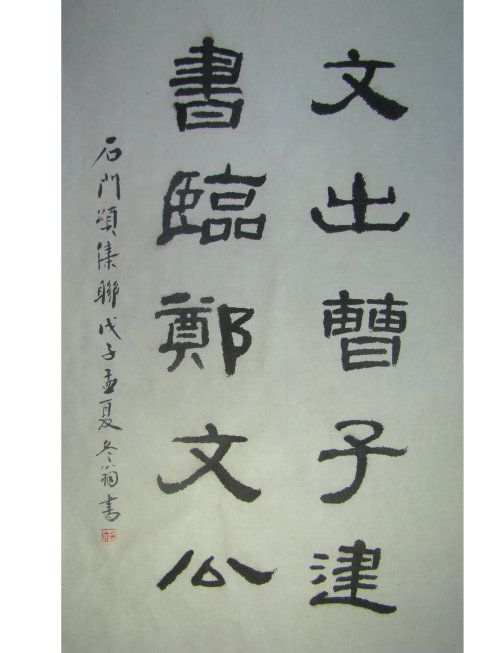 文出曹子建
書臨鄭文公
石門頌集聯戊子孟夏冬翁书